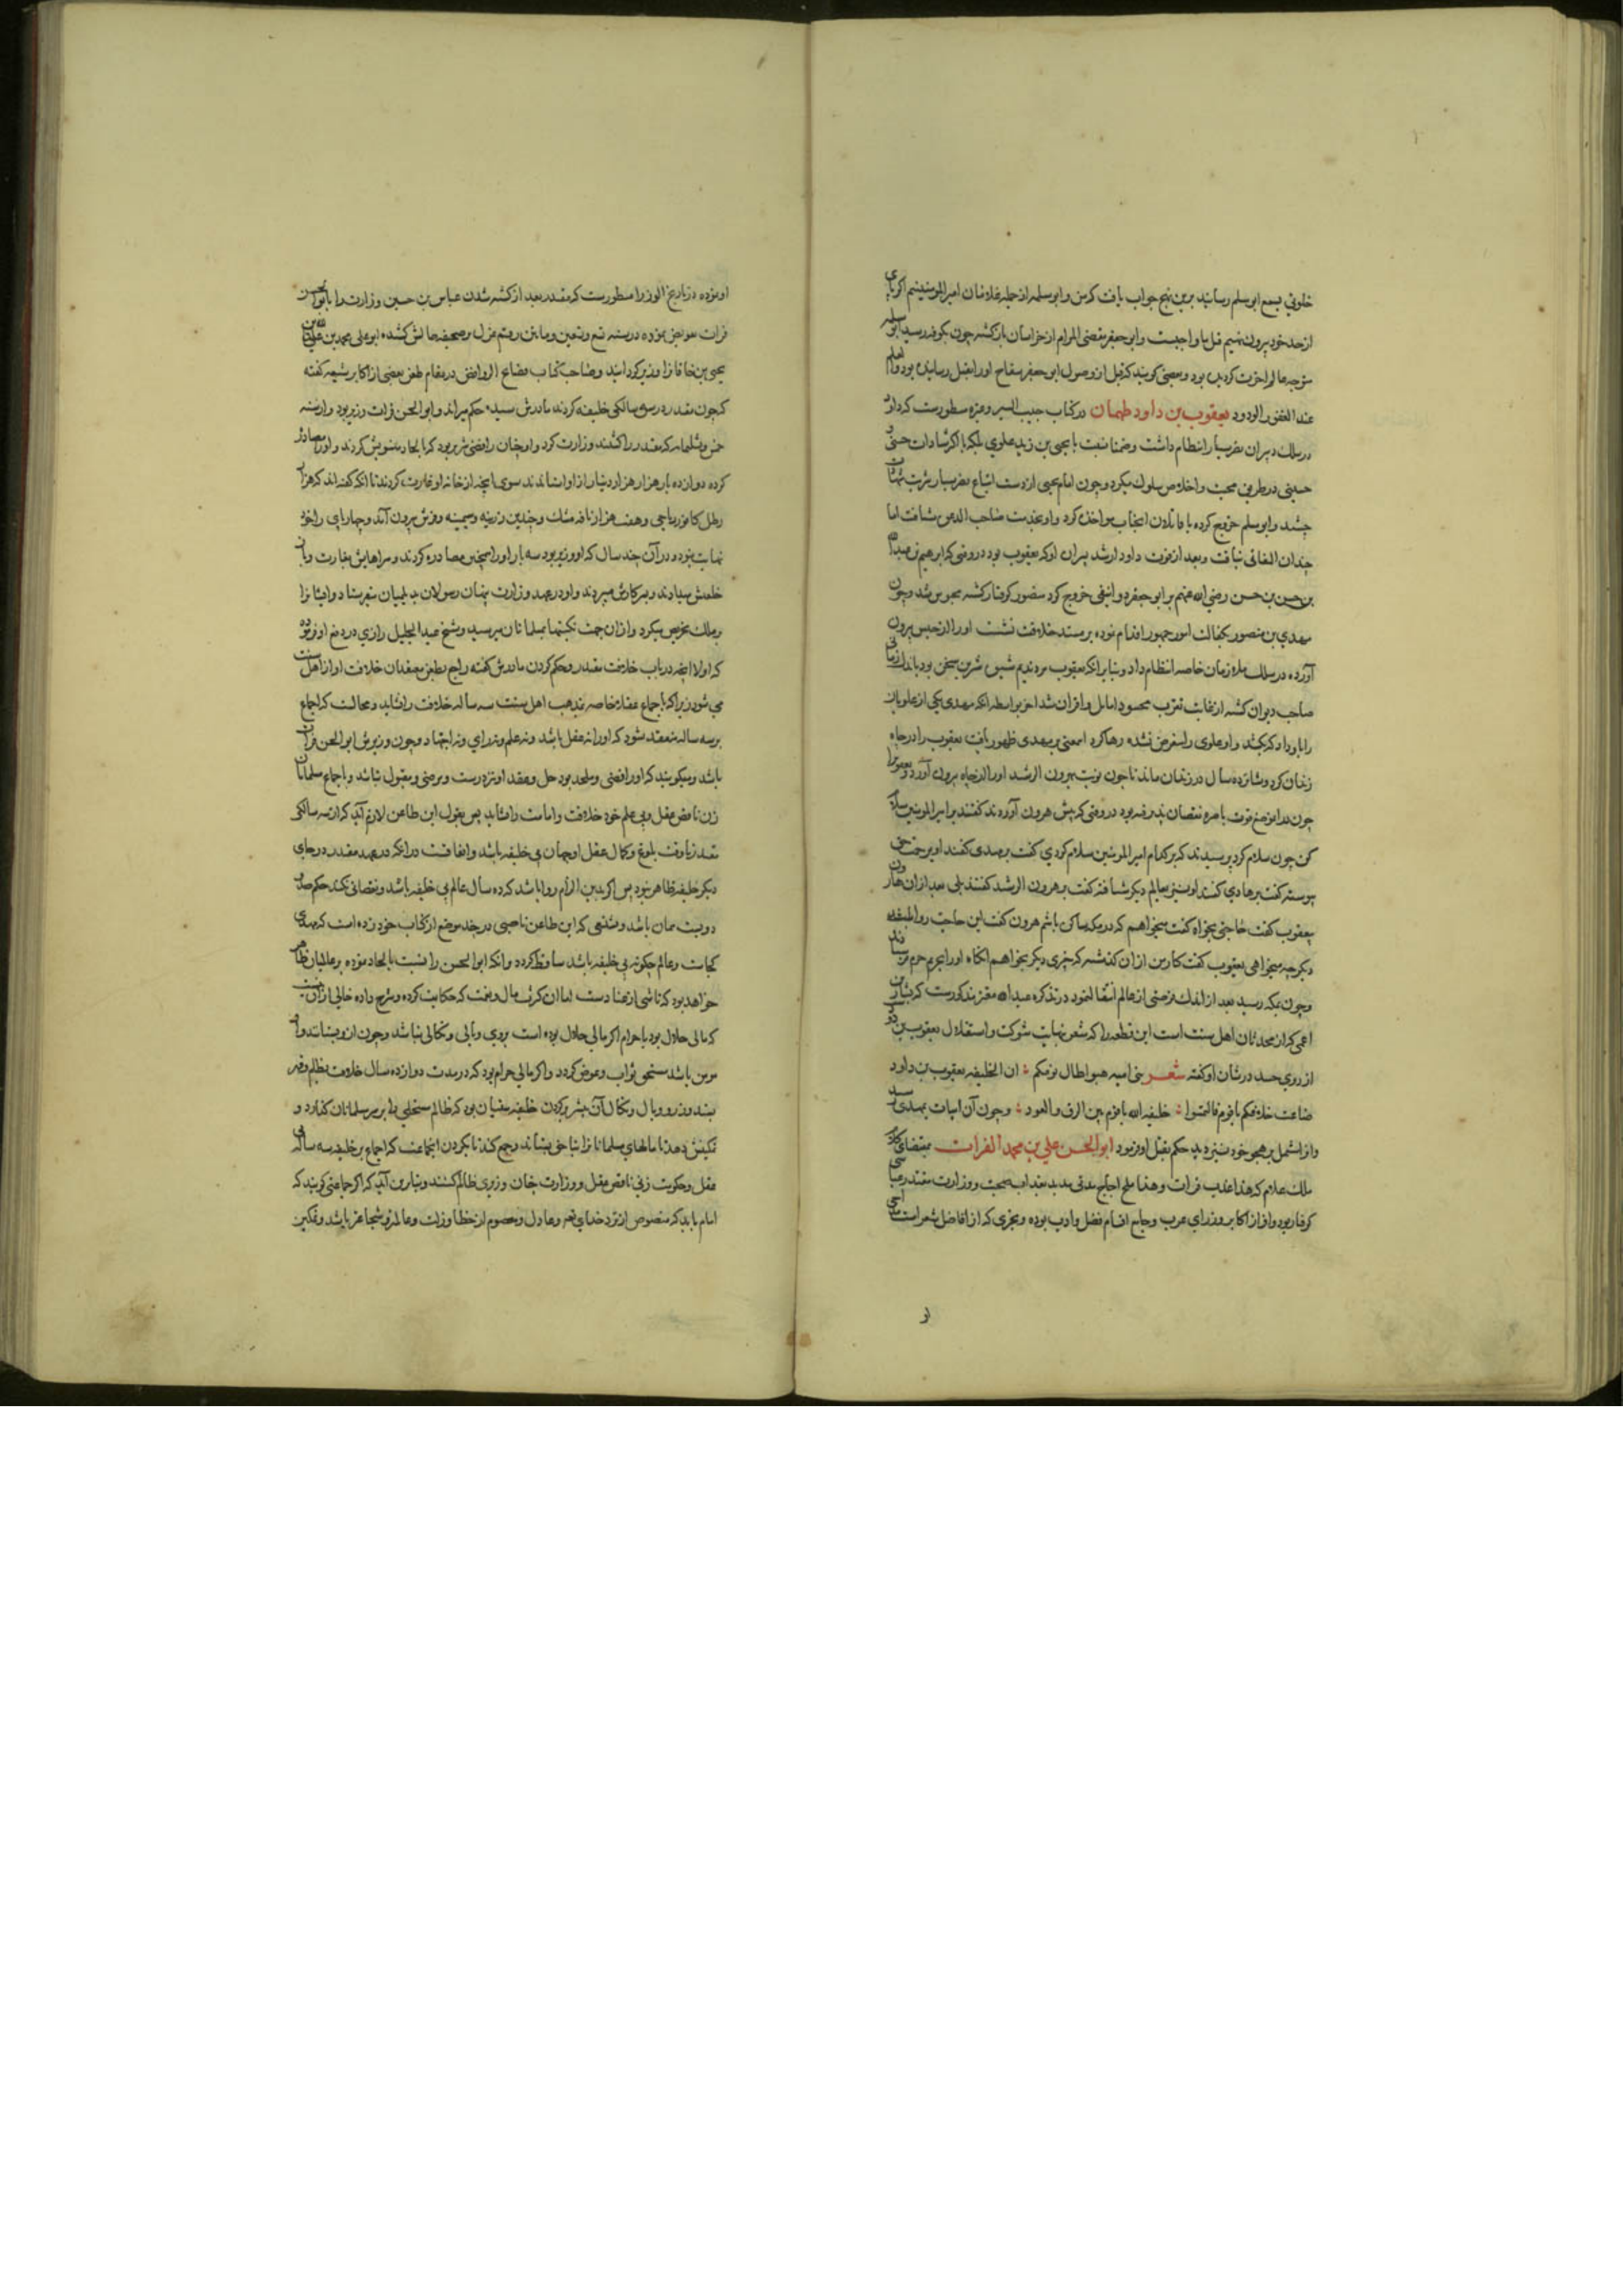 خلوتی بسمع ابو مسلم رسانید برین نهج جواب یافت که من و ابو سلمه از جمله غلامان امیر المومنینیم اگر پای
از حد خود بیرون نهیم قتل ما واجبست و ابو جعفر مقضی المرام از خراسان بازگشته چون بکوفه رسید ابو سلمه
متوجه عالم آخرت گردیده بود و بعضی گویند که قبل از وصول ابو جعفر سفاح او را بقتل رسانیده بود و العلم
عند الغفور الودود یعقوب بن داود طهمان در کتاب حبیب السیر و غیره مسطورست که داود
در سلک دبیران نصر سیار انتظام داشت و ضمنا نسبت با یحیی بن زید علوی بلکه با اکثر سادات حسنی و
حسینی در طریق محبت و اخلاص سلوک میکرد و چون امام یحیی از دست اتباع نصر سیار شربت شهادت
چشید و ابو مسلم خروج کرده با قاتلان آنجناب مواخذه کرد و او بخدمت صاحب الدعوه شتافت اما
چندان التفاتی نیافت و بعد از فوت داود ارشد پسران او که یعقوب بود در وقتی که ابرهیم بن عبد الله
بن حسن بن حسن رضی الله عنهم بر ابو جعفر دوانیقی خروج کرد منصور گرفتار گشته محبوس شد و چون
مهدی بن منصور بکفالت امور جمهور اقدام نموده بر مسند خلافت نشست او را از حبس بیرون
آورده در سلک ملازمان خاصه انتظام داد و بنابر آنکه یعقوب مردی ندیم شیوه شیرین سخن بود باندک زمانی
صاحب دیوان گشته از غایت تقرب محسود اماثل و اقران شد آخر بواسطه آنکه مهدی یکی از علویان
را باو داد که بکشد و او علوی را متعرض نشده رها کرد این معنی بر مهدی ظهور یافت یعقوب را در چاه
زندان کرد و شانزده سال در زندان ماند تا چون نوبت بهرون الرشید او را از چاه بیرون آورد و یعقوب را
چون در آن موضع قوت باصره نقصان پذیرفته بود در وقتی که پیش هرون آوردند گفتند بر امیر المومنین سلام
کن چون سلام کرد پرسیدند که بر کدام امیر المومنین سلام کردی گفت بر مهدی گفتند او برحمت حق
پیوسته گفت بر هادی گفتند او نیز بعالم دیگر شتافته گفت بر هرون الرشید گفتند بلی بعد از آن هارون
یعقوب گفت حاجتی بخواه گفت میخواهم که در مکه ساکن باشم هرون گفت این حاجت روا
دیگر چه میخواهی یعقوب گفت کار من از آن گذشته که چیزی دیگر بخواهم آنگاه او را بحریم حرم رسانیدند
و چون بمکه رسید بعد از اندک زمانی از عالم انتقال نمود در تذکره عبد الله معتز مذکورست که بشار بن
اعمی که از محدثان اهل سنت است این قطعه را که مشعر بنهایت شوکت و استقلال یعقوب بن داود
از روی حسد در شان او گفته شعر بنی امیه هبوا طال نومکم ؛ ان الخلیفه یعقوب بن داود
ضاعت خلافتکم یا قوم فالتمسوا ؛ خلیفه الله یا قوم بین الزق و العود ؛ و چون آن ابیات بمهدی رسید
و آنرا مشتمل بر هجو خود نیز دید حکم بقتل او فرمود ابو الحسن علی بن محمد الفرات بمقتضای کلام
ملک علام که هذا عذب فرات و هذا ملح اجاج مدتی مدید بعذاب صحبت و وزارت مقتدر عباسی
گرفتار بود و او از اکابر وزرای عرب و جامع اقسام فضل و ادب بوده و بحتری که از افاضل شعراست مداحی
او
او نموده در تاریخ الوزرا مسطورست که مقتدر بعد از کشته شدن عباس بن حسین وزارت را بابو الحسن
فرات تفویض نموده در سنه تسع و تسعین و ماتین رقم عزل بر صحیفه حالش کشیده ابو علی محمد بن عبید الله بن
یحیی بن خاقان را وزیر گردانید و صاحب کتاب فضایح الروافض در مقام طعن بعضی از اکابر شیعه گفته
که چون مقتدر در سن سه سالگی خلیفه کردند مادرش سیده حکم میراند و ابو الحسن فرات وزیر بود و از سنه
خمس و ثلثمایه که مقتدر را کشتند وزارت کرد و او چنان رافضی شریر بود که بالحاد منسوبش کردند و او را مصادره
کرده دوازده بار هزار هزار دینار از او استاندند سوی آنچه از خانه او غارت کردند تا آنکه گفته اند که هزار
رطل کافور ریاحی و هفت هزار نافه مشک و چندین زرینه و سیمینه و فرش بیرون آمد و چهارپای را خود
نهایت نبود و در آن چند سال که او وزیر بود سه بار او را همچنین مصادره کردند و سراهایش بغارت و باز
خلعتش میدادند و بسر کارش میبردند و او در عهد وزارت پنهان رسولان بدیلمان میفرستاد و ایشانرا
بر ملک تحریص میکرد و از آن جهت نکبتها بمسلمانان میرسید و شیخ عبد الجلیل رازی در دفع او فرموده
که اولا آنچه در باب خلافت مقتدر و حکم کردن مادرش گفته راجع بطعن معتقدان خلافت او از اهل سنت
می شود زیرا که اجماع عقلا خاصه مذهب اهل سنت سه ساله خلافت را نشاید و محالست که اجماع
بر سه ساله منعقد شود که او را نه عقل باشد و نه علم و نه رای و نه اجتهاد و چون وزیرش ابو الحسن فرات
باشد و میگویند که او رافضی و ملحد بود حل و عقد او نه درست و مرضی و مقبول نباشد و باجماع مسلمانان
زن ناقص عقل و بی علم خود خلافت و امامت را نشاید پس بقول این طاعن لازم آید که از سه سالگی
مقتدر تا وقت بلوغ و کمال عقل او جهان بی خلیفه باشد و اتفاقست در آنکه در عهد مقتدر در جای
دیگر خلیفه ظاهر نبود پس اگر بدین الزام روا باشد که ده سال عالم بی خلیفه باشد و نقصانی نکند حکم صد و
دویست همان باشد و شنعتی که این طاعن ناصبی در چند موضع از کتاب خود زده است که مهدی
کجاست و عالم چگونه بی خلیفه باشد ساقط گردد و آنکه ابو الحسن را نسبت بالحاد نموده بر عالمیان ظاهر
خواهد بود که ناشی از عناد است اما آن کثرت مال و نعمت که حکایت کرده و شرح داده خالی از آن نیست
که مالی حلال بود یا حرام اگر مالی حلال بوده است بروی وبالی و نکالی نباشد و چون ازو بستانند و او
مومن باشد مستحق ثواب و عوض گردد و اگر مالی حرام بود که در مدت دوازده سال خلافت بظلم و قهر
بستد وزر و وبال و نکال آن بیشتر بگردن خلیفه سنیان بود که ظالم مستحلی را بر سر مسلمانان گمارد و
تمکینش دهد تا مالهای مسلمانانرا بناحق بستاند و جمع کند تا بگردن آنجماعت که اجماع بر خلیفه سه ساله
عقل و حکومت زنی ناقص عقل و وزارت چنان وزیری ظالم کنند و بنابرین آید که اگر جماعتی گویند که
امام باید که منصوص از نزد خدای بود و عادل و معصوم از خطا و زلت و عالمتر و شجاعتر باشد و تمکین